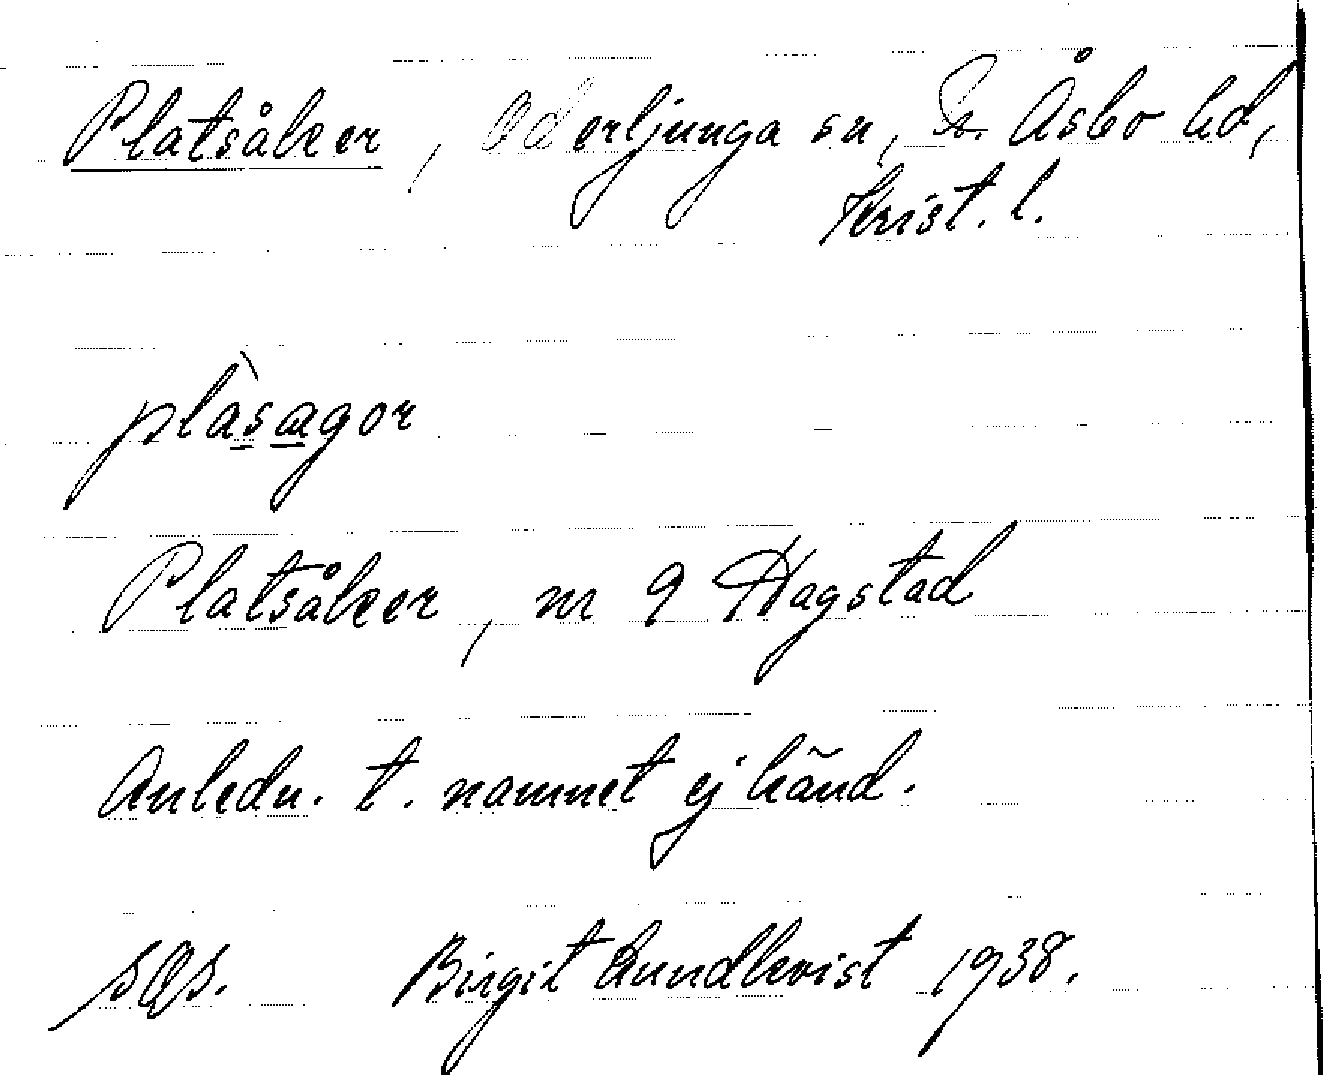 Platsåker, Oderljunga sn, N. Åsbo hd,
Krist. l.
plàsægor
Platsåker, nr 9 Hagstad
Anledn. t. namnet ej känd.
Birgit Lundkvist 1938.